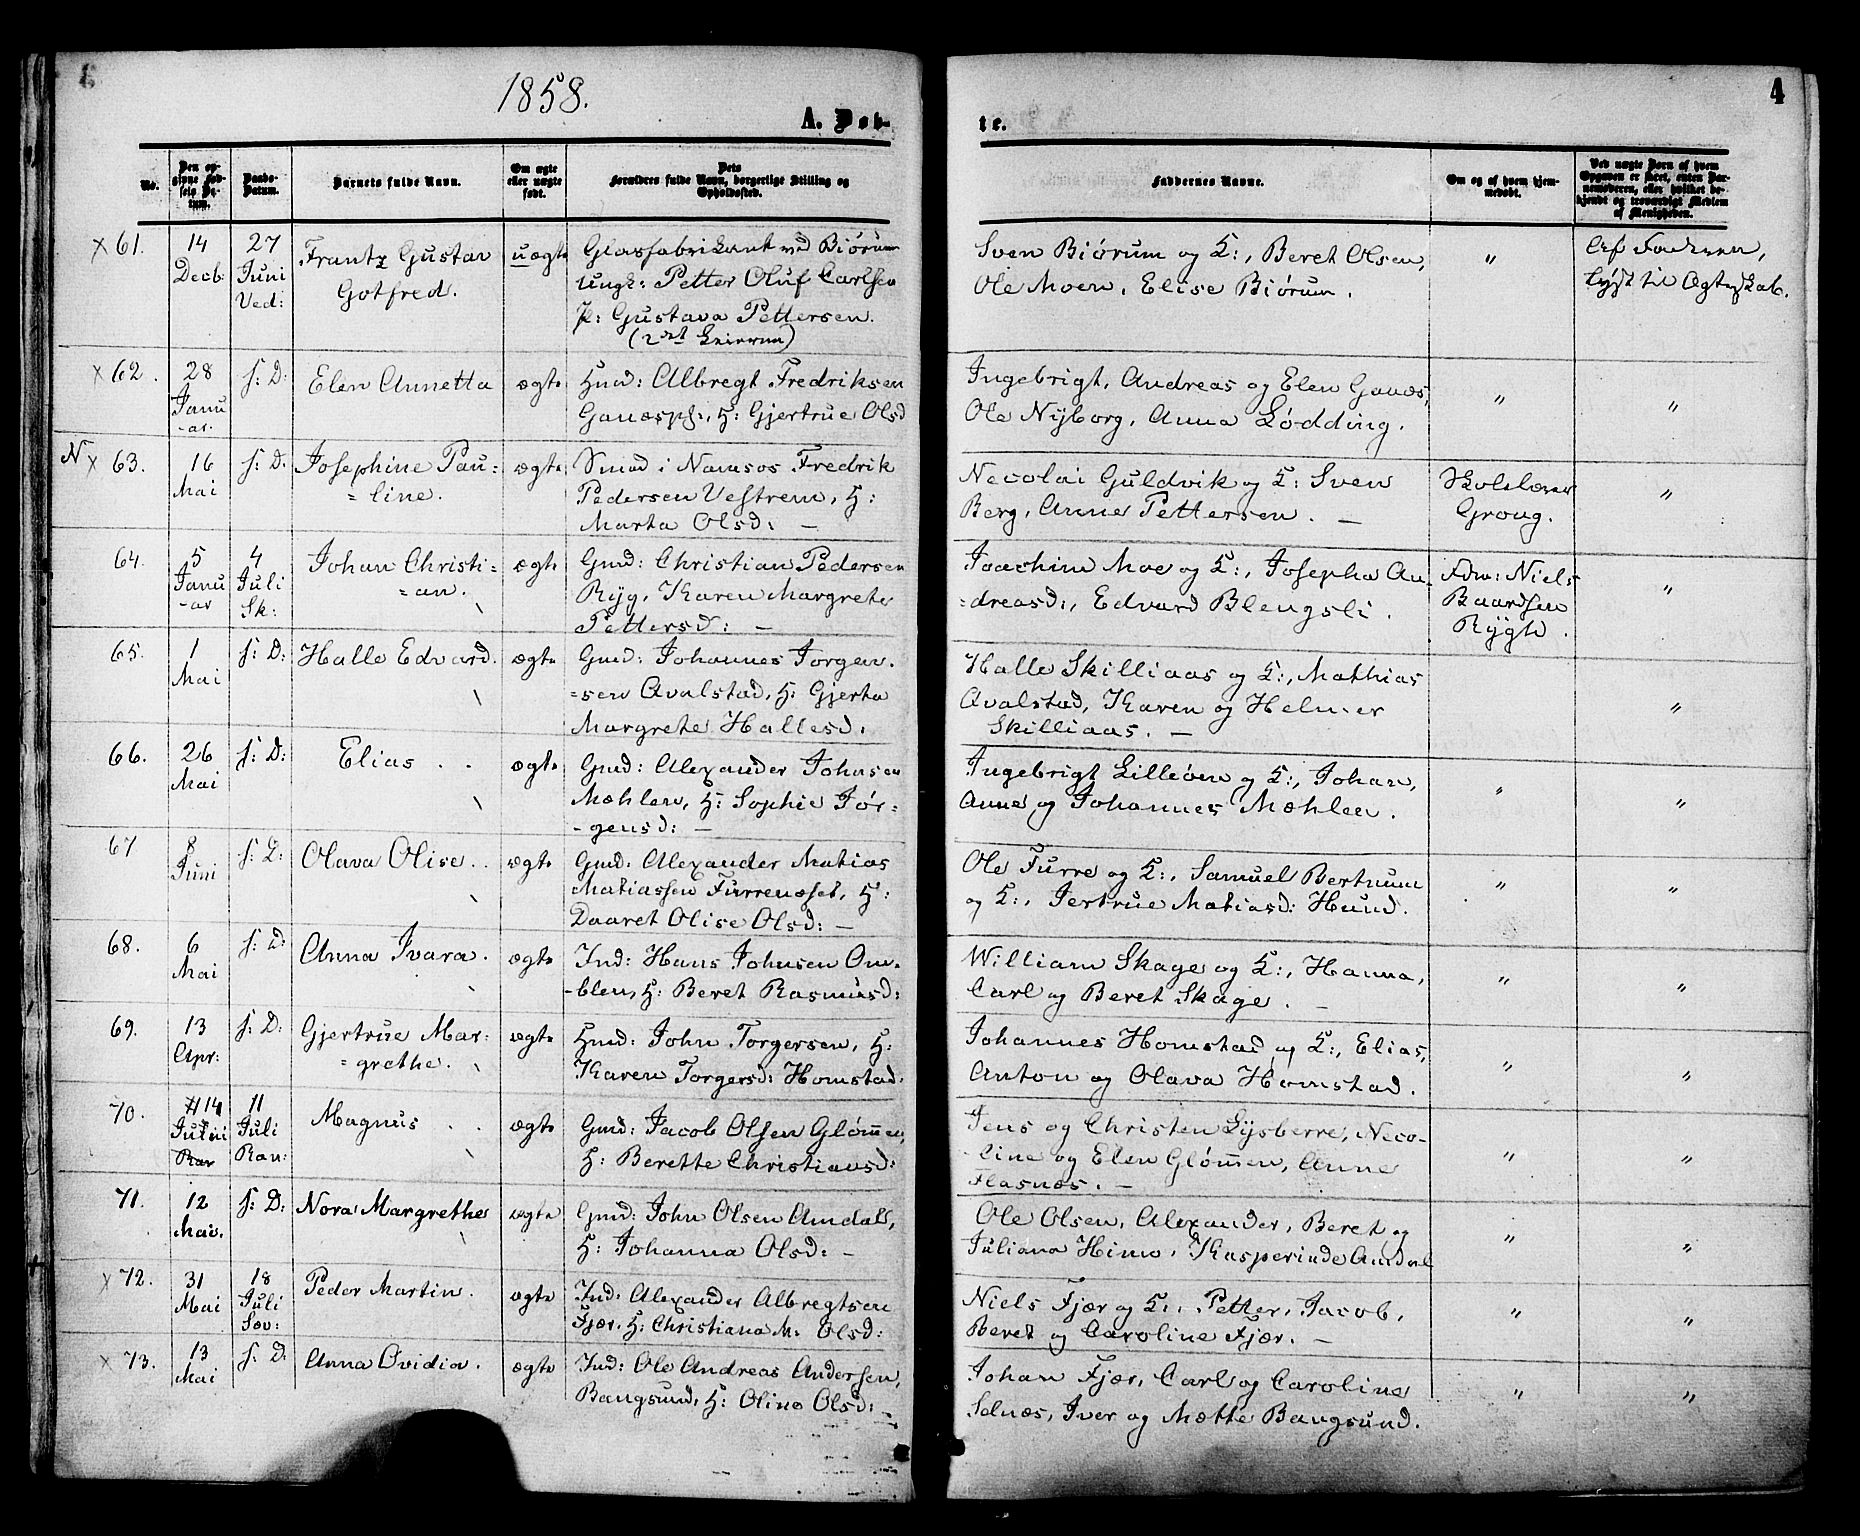 1858.
4
A. Døb-
te.
No.
Den op-
givne Fød-
sels Da-
tum.
Daabs-
Datum.
Barnets fulde Navn.
Om ægte
eller uægte
født.
Dets
Forældres fulde Navn, borgerlige Stilling og
Opholdssted.
Faddernes Navne.
Om og af hvem hjem-
medøbt.
Ved uægte Børn af hvem
Opgaven er skeet, enten Bar-
nemoderen, eller hvilket be-
kjendt og troværdigt Medlem
af Menigheden.
x 61.
14
Decb.
27
Juni
Ved:
Frantz Gustav
Gotfred.
uægte
Glasfabrikant ved Biørum
Ungk: Petter Oluf Carlsen
P: Gustava Pettersen.
(2det Leierm)
Sven Biørum og K:, Beret Olsen,
Ole Moen, Elise Biørum.
"
Af Faderen,
lyst til Ægteskab.
x 62.
28
Janu
-ar.
s: D:
Elen Annetta
ægte
Hmd: Albregt Fredriksen
Ganæspl:, H: Gjertrue Olsd
Ingebrigt, Andreas og Elen Ganæs,
Ole Nyborg, Anna Lødding.
"
"
N x 63.
16
Mai
s: D:
Josephine Pau=
=line.
ægte
Smed i Namsos Fredrik
Pedersen Vestrem, H:
Marta Olsd: —
Necolai Guldvik og K: Sven
Berg, Anne Pettersen. —
Skolelærer
Grong.
"
64.
5
Janu
-ar
4
Juli
Sk:
Johan Christi=
=an.
ægte
Gmd: Christian Pedersen
Ryg, Karen Margrete
Pettersd: —
Joachim Moe og K:, Josepha An-
=dreasd:, Edvard Blengsli.
Fdm: Niels
Baardsen
Rygh.
"
65.
1
Mai
s: D:
Halle Edvard.
ægte
Gmd: Johannes Jorgen.
=sen Avalstad, H: Gjerta
Margrete Hallesd:
Halle Skilliaas og K:, Mathias
Avalstad, Karen og Helmer
Skilliaas. —
"
66.
26
Mai
s: D:
Elias . .
ægte
Gmd: Alexander Johnsen
Mæhlen, H: Sophie Jør-
-gensd: —
Ingebrigt Lilleøen og K:, Johan,
Anne og Johannes Mæhlen.
"
"
67
8
Juni
s: D:
Olava Olise. .
ægte
Gmd: Alexander Matias
Matiassen Furrenæset, H:
Daaret Olise Olsd: —
Ole Furre og K:, Samuel Bertnum
og K:, Jertrue Matiasd: Hund.
"
"
68.
6
Mai
s: D:
Anna Ivara.
ægte
Ind: Hans Johnsen Om-
-blen, H: Beret Rasmusd:
William Skage og K:, Hanna,
Carl og Beret Skage. —
"
"
69.
13
Apr:
s: D:
Gjertrue Mar=
=grethe.
ægte
Hmd: John Torgersen, H:
Karen Torgersd: Homstad.
Johannes Homstad og K:, Elias,
Anton og Olava Homstad.
"
"
70.
14
Juni
Ran
11
Juli
Ran:
Magnus . .
ægte
Gmd: Jacob Olsen Glømmen,
H: Berette Christiansd:
Jens og Christen Lysberre, Neco-
-line og Elen Glømmen, Anne
Flasnæs. —
"
"
71.
12
Mai.
s: D:
Nora Margrethe
ægte
Gmd: John Olsen Amdal,
H: Johanna Olsd: —
Ole Olsen, Alexander, Beret og
Juliana Himo, Kasperinde Amdal
"
"
x 72.
31
Mai
18
Juli
Sæv:
Peder Martin.
ægte
Ind: Alexander Albregtsen
Fjær, H: Christiana M: Olsd:
Niels Fjær og K:, Petter, Jacob,
Beret og Caroline Fjær. —
"
"
x 73.
13
Mai
s: D:
Anna Ovidia.
ægte
Ind: Ole Andreas Andersen,
Bangsund, H: Oline Olsd: —
Johan Fjær, Carl og Caroline
Selnæs, Iver og Mætte Bangsund.
"
"